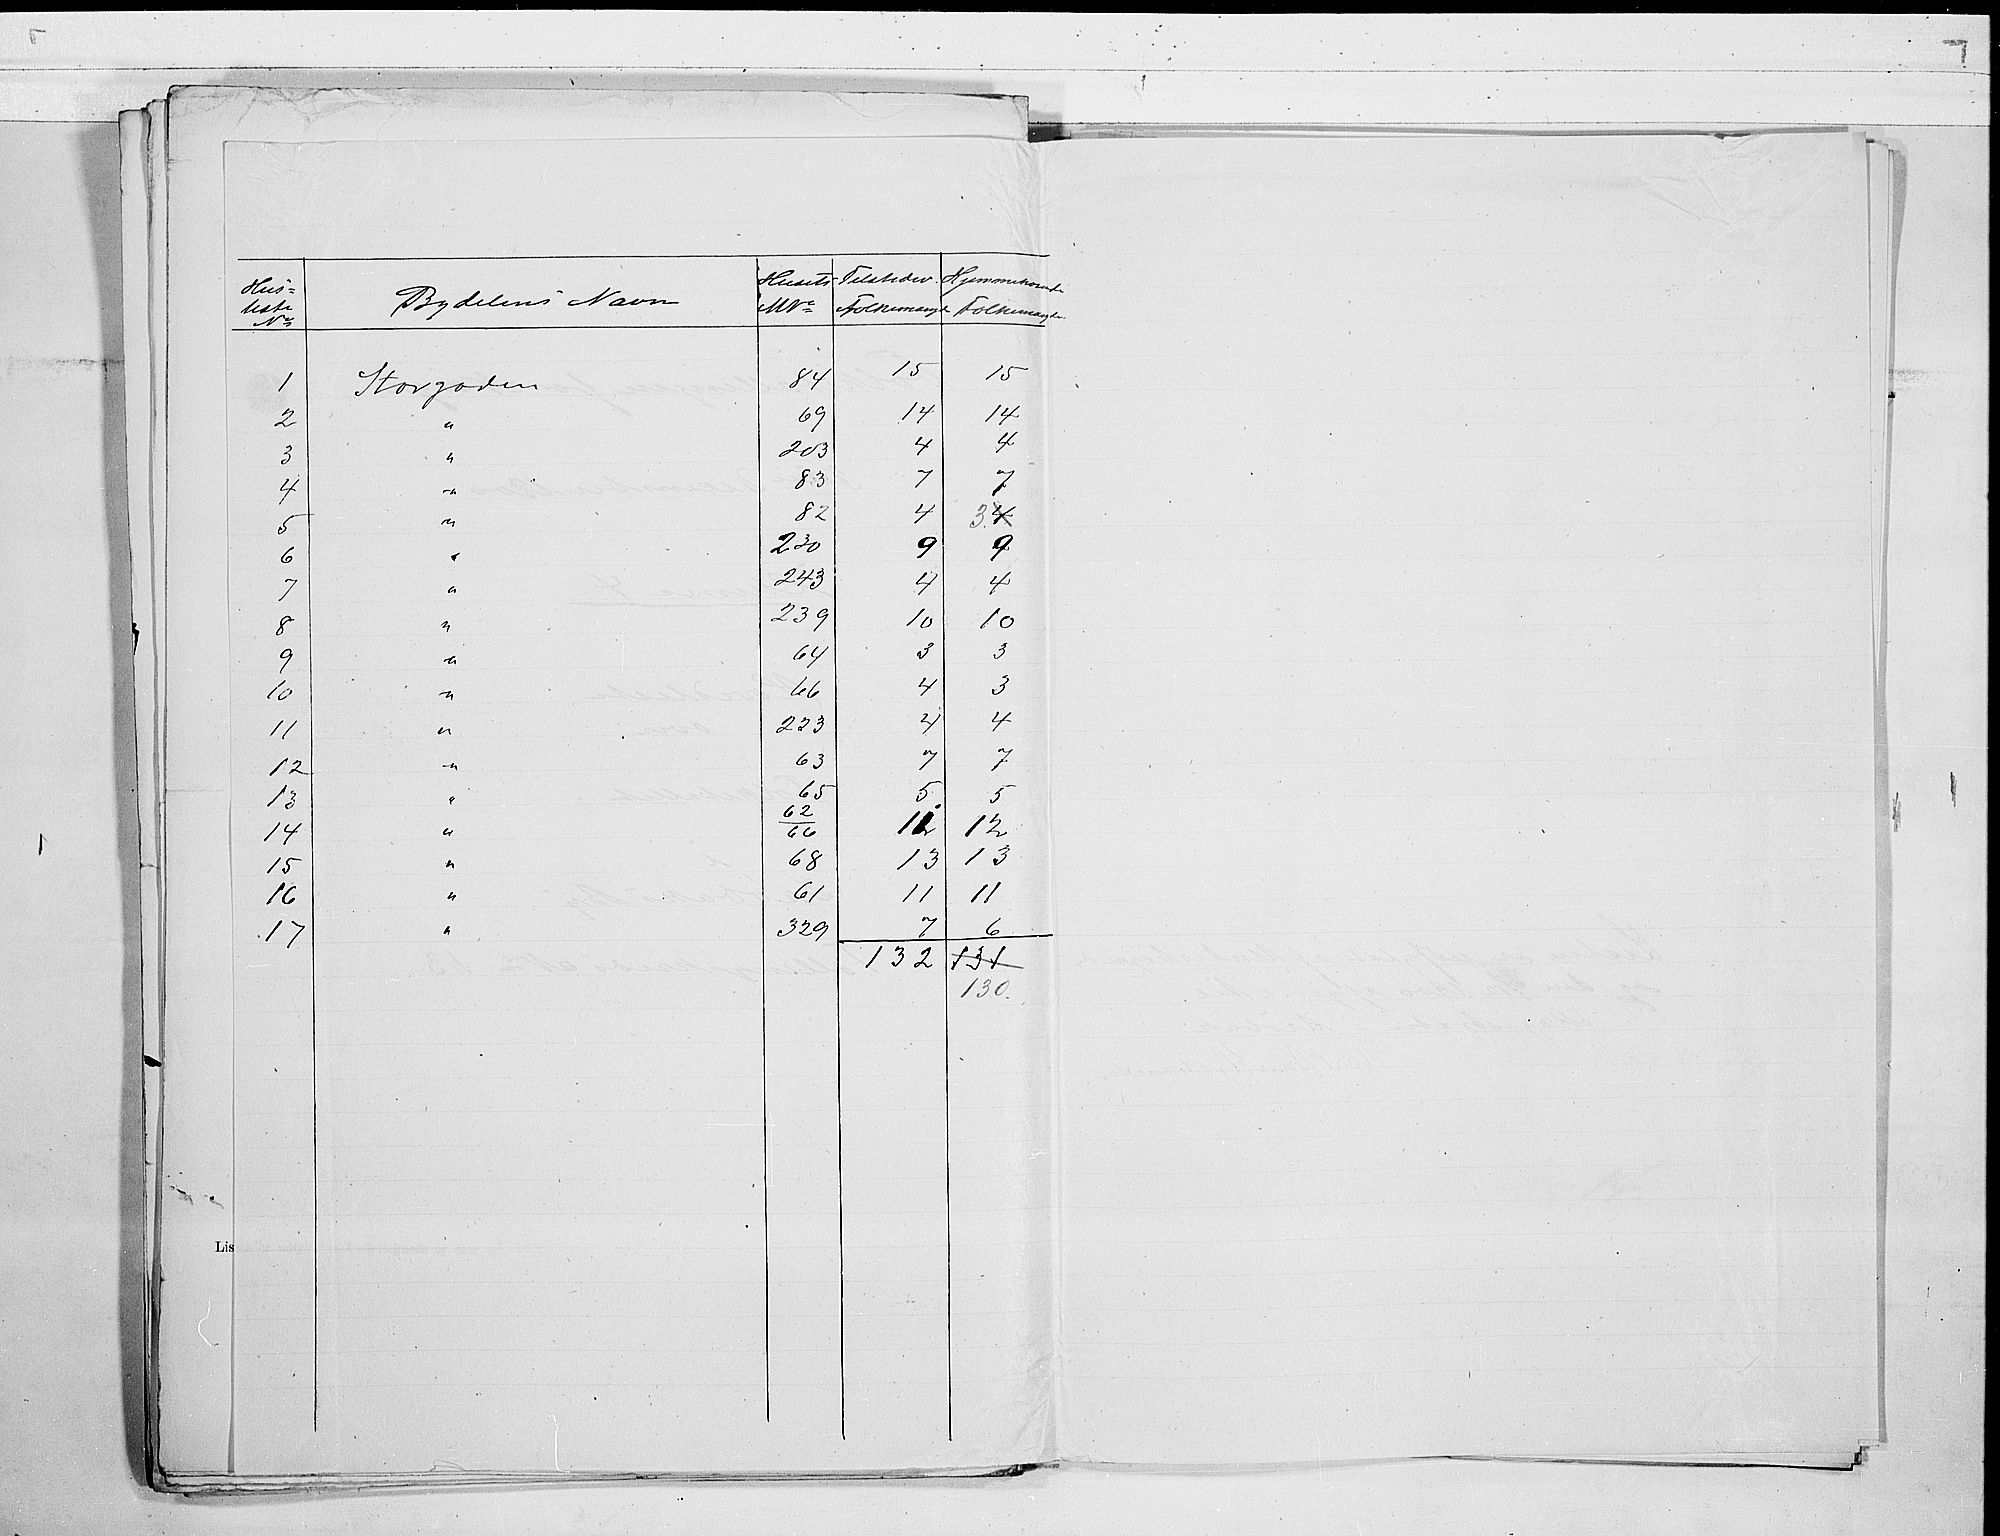 Hus= Bydelens Navn Husets Tilstedev. Hjemmehørende
liste MNo Folkemængde Folkemængde
No
1 Storgaden 84 15 15
2 " 69 14 14
3 " 203 4 4
4 " 83 7 7
5 " 82 4 3 4
6 " 230 9 9
7 " 243 4 4
8 " 239 10 10
9 " 64 3 3
10 " 66 4 3
11 " 223 4 4
12 " 63 7 7
13 " 65 5 5
14 " 62/66 11 12
15 " 68 13 13
16 " 61 11 11
17 " 329 7 6
132 131
130.
Lis